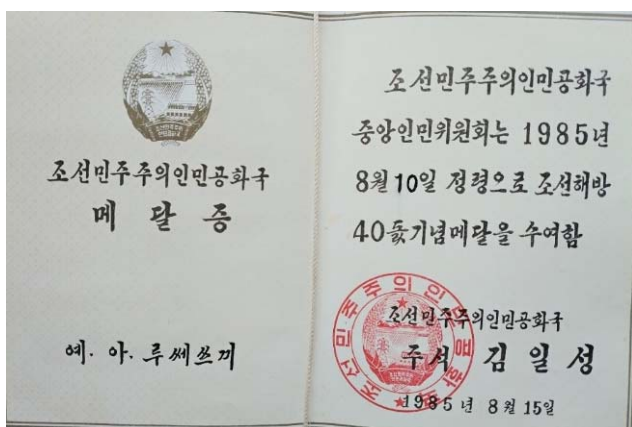 조선민주주의인민공화국
메달증
예. 아. 루쎄쓰끼
조선민주주의인민공화국
중앙인민위원회는 1985년
8월 10일 정령으로 조선해방
40돐기념메달을 수여함
조선민주주의인민공화국
주석 김일성
1985년 8월 15일
조선민주주의인민공화국